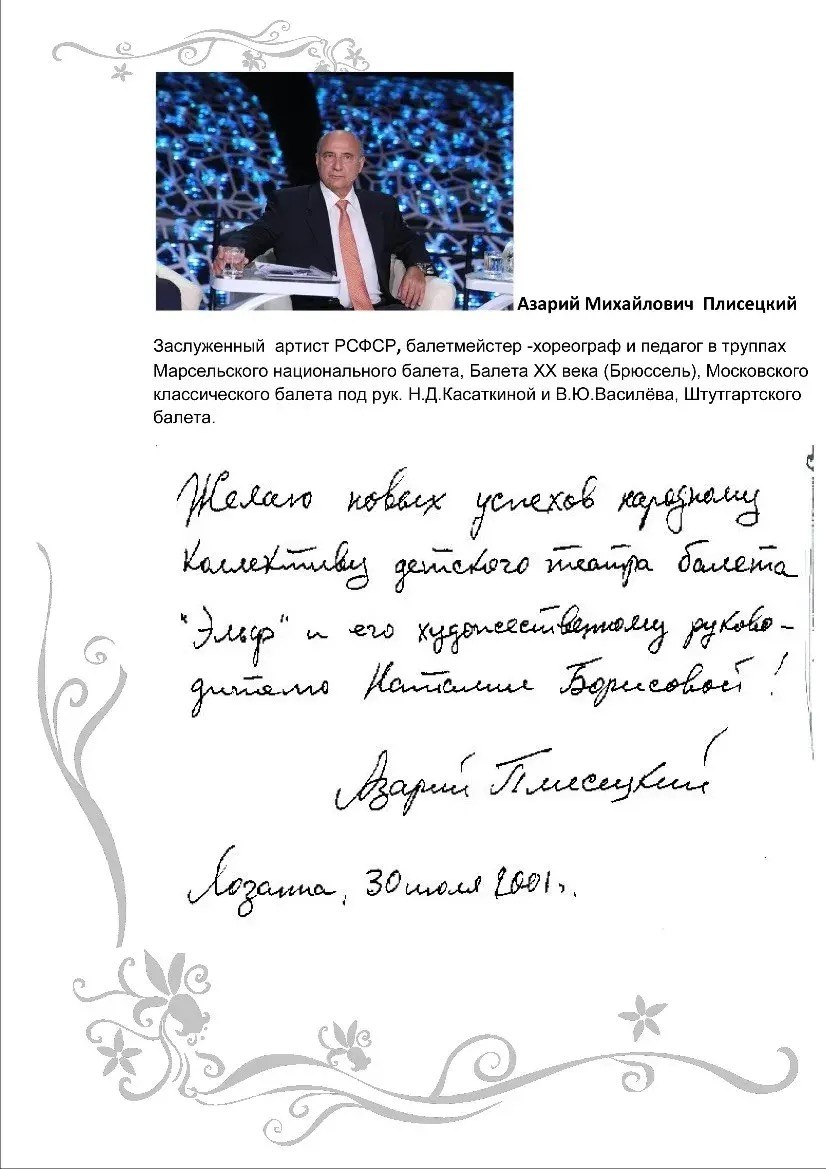 Азарий Михайлович Плисецкий
Заслуженный артист РСФСР, балетмейстер -хореограф и педагог в труппах
Марсельского национального балета, Балета XX века (Брюссель), Московского
классического балета под рук. Н.Д.Касаткиной и В.Ю.Василёва, Штутгартского
балета.
Желаю новых успехов народному
коллективу детского театра балета
"Эльф" и его художественному руково-
дителю Наталии Борисовой!
Азарий Плисецкий
Лозанна, 30 июля 2001г.